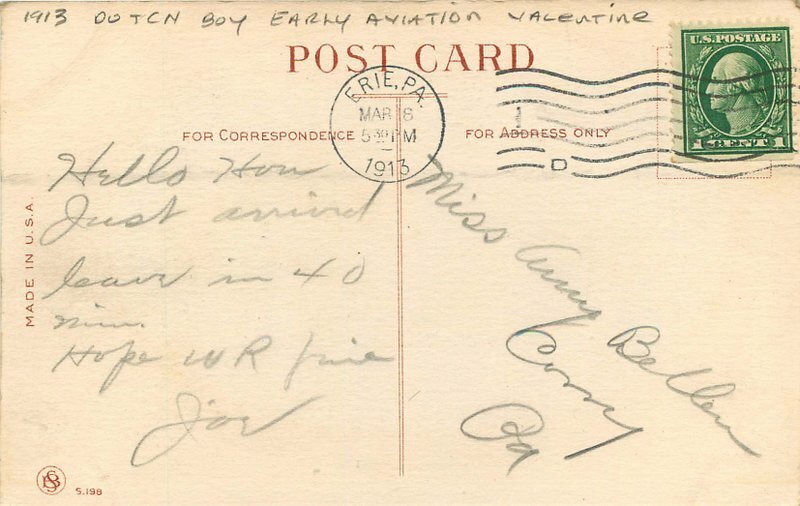 1913 DUTCH BOY EARLY AVIATION VALENTINE
POST CARD
ERIE, PA.
MAR 8
5-30 PM
1913
1
D
U.S. POSTAGE
1 CENT 1
FOR CORRESPONDENCE
FOR ADDRESS ONLY
Hello Hon
Just arrived
leave in 40
min.
Hope U R fine
Joe
Miss
Corry
Pa
MADE IN U.S.A.
S.198